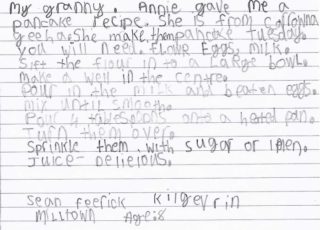 My granny. Annie gave me a
pancake recipe. She is from
geeha. She make them pancake tuesday.
you will need. flour Eggs, milk.
Sift the flour in to a Large bowl.
make a well in the centre.
Pour in the milk and beaten eggs.
mix until smooth.
Pour 4 tablespoons onto a heated pan.
Turn them over.
Sprinkle them with sugar or
Juice- Delicious.
Sean feerick
Milltown Age:8